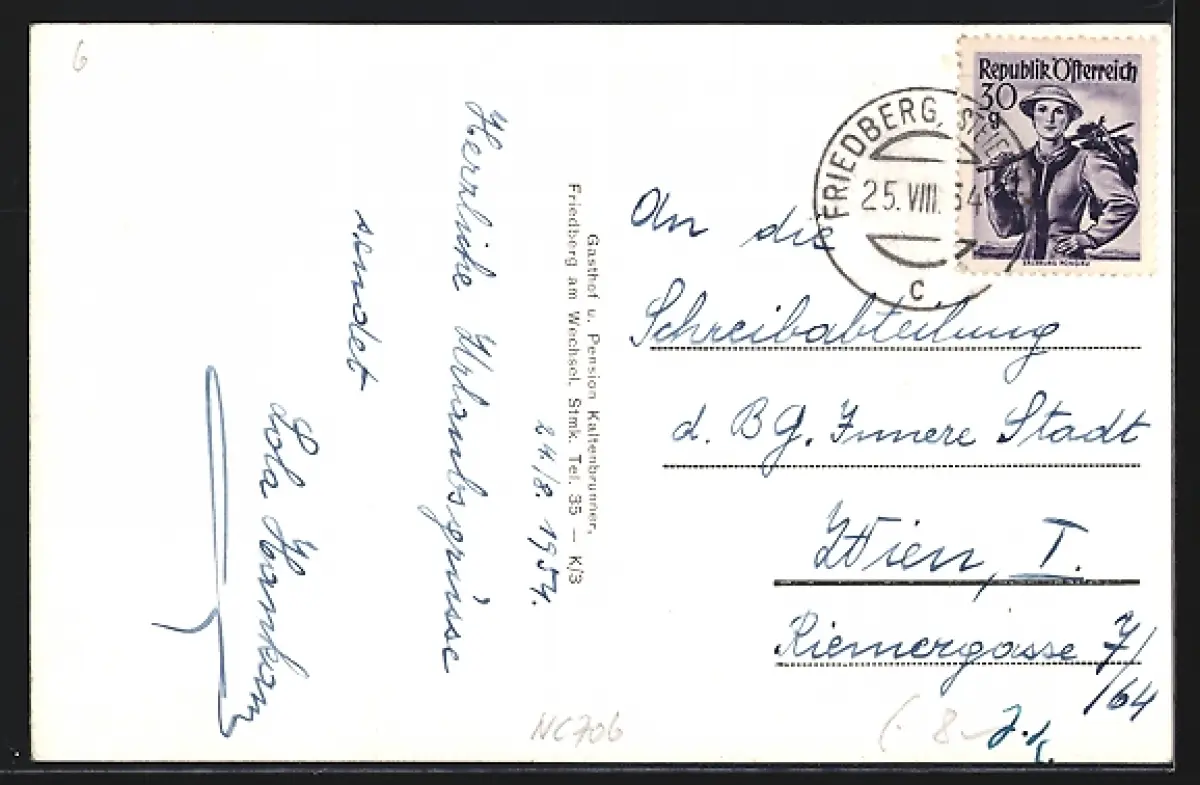 6
24/8. 1954.
Herzliche Urlaubsgrüsse
sendet
Lola
Gasthof u. Pension Kaltenbrunner,
Friedberg am Wechsel, Stmk. Tel. 35 — K/3
Republik Österreich
30
g
FRIEDBERG, STEIERM
25. VIII. 54
c
An die
Schreibabteilung
d. BG. Innere Stadt
Wien, I.
Riemergasse 7/
/64
NC706